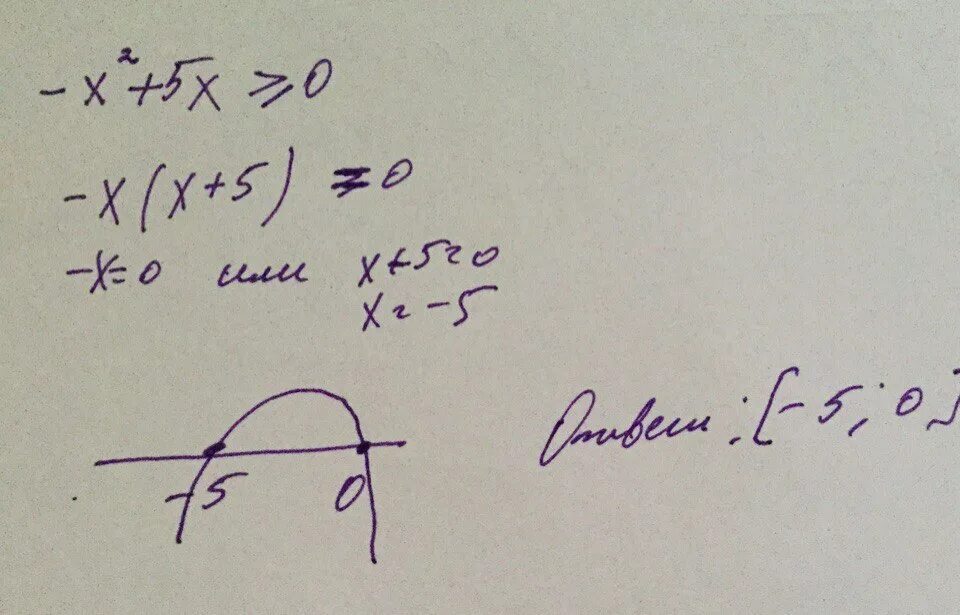 -x²+5x ⩾0
-x(x+5) =0
-x=0 или x+5=0
x=-5
-5 0
Ответ: [-5; 0]